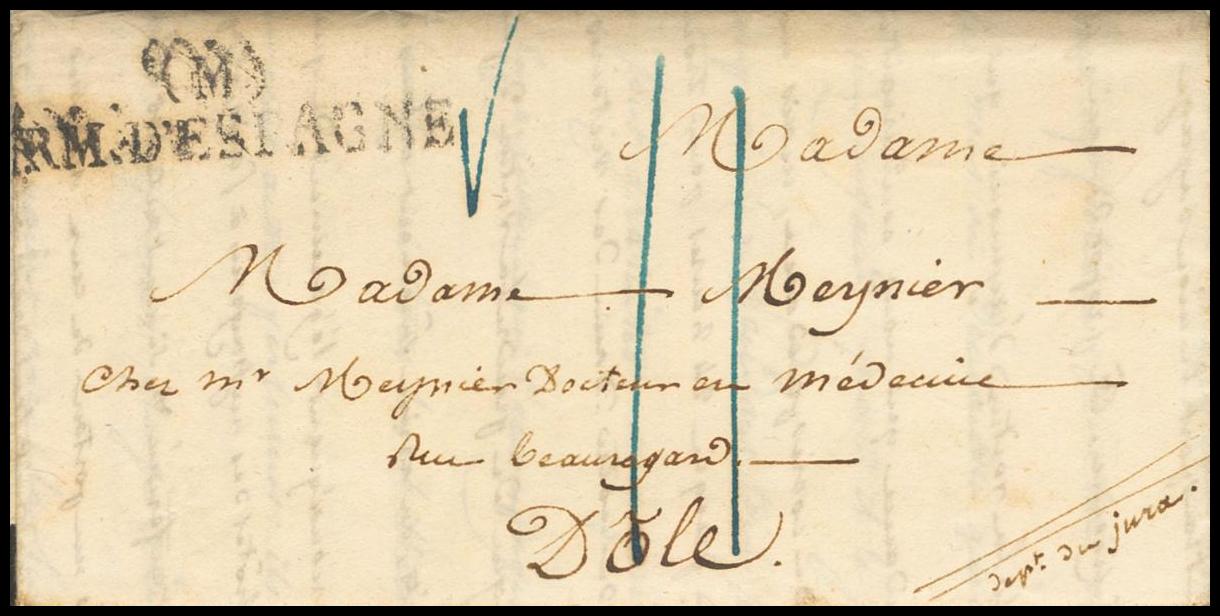 (M)
ARM. D'ESPAGNE
Madame
Madame Meynier
Chez mr Meynier Docteur en médecine
Rue beauregard.
Dôle.
dept. du jura.